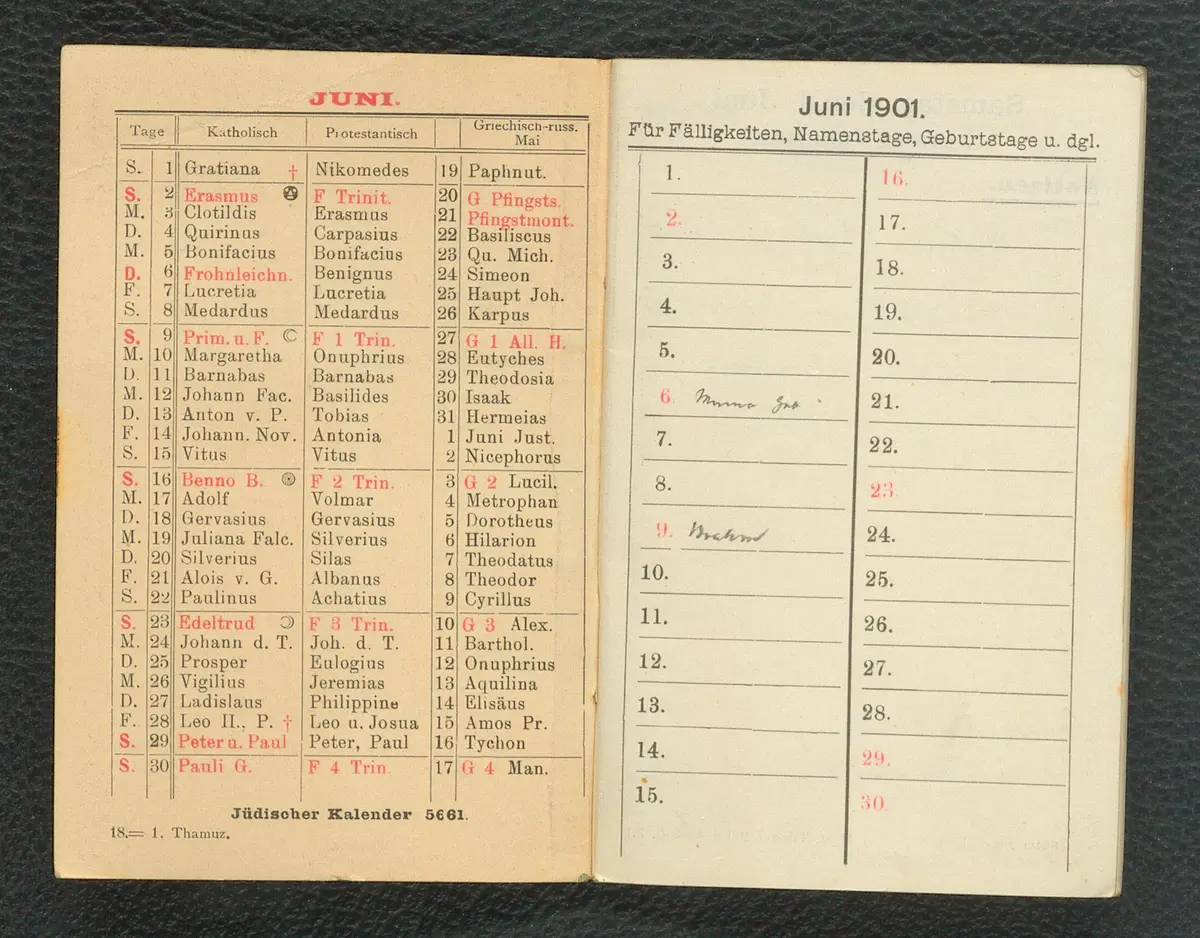 JUNI.
Tage Katholisch Protestantisch Griechisch-russ. Mai
S. 1 Gratiana † Nikomedes 19 Paphnut.
S. 2 Erasmus F Trinit. 20 G Pfingsts.
M. 3 Clotildis Erasmus 21 Pfingstmont.
D. 4 Quirinus Carpasius 22 Basiliscus
M. 5 Bonifacius Bonifacius 23 Qu. Mich.
D. 6 Frohnleichn. Benignus 24 Simeon
F. 7 Lucretia Lucretia 25 Haupt Joh.
S. 8 Medardus Medardus 26 Karpus
S. 9 Prim. u. F. F 1 Trin. 27 G 1 All. H.
M. 10 Margaretha Onuphrius 28 Eutyches
D. 11 Barnabas Barnabas 29 Theodosia
M. 12 Johann Fac. Basilides 30 Isaak
D. 13 Anton v. P. Tobias 31 Hermeias
F. 14 Johann. Nov. Antonia 1 Juni Just.
S. 15 Vitus Vitus 2 Nicephorus
S. 16 Benno B. F 2 Trin. 3 G 2 Lucil.
M. 17 Adolf Volmar 4 Metrophan
D. 18 Gervasius Gervasius 5 Dorotheus
M. 19 Juliana Falc. Silverius 6 Hilarion
D. 20 Silverius Silas 7 Theodatus
F. 21 Alois v. G. Albanus 8 Theodor
S. 22 Paulinus Achatius 9 Cyrillus
S. 23 Edeltrud F 3 Trin. 10 G 3 Alex.
M. 24 Johann d. T. Joh. d. T. 11 Barthol.
D. 25 Prosper Eulogius 12 Onuphrius
M. 26 Vigilius Jeremias 13 Aquilina
D. 27 Ladislaus Philippine 14 Elisäus
F. 28 Leo II., P. † Leo u. Josua 15 Amos Pr.
S. 29 Peter u. Paul Peter, Paul 16 Tychon
S. 30 Pauli G. F 4 Trin. 17 G 4 Man.
Jüdischer Kalender 5661.
18.= 1. Thamuz.
Juni 1901.
Für Fälligkeiten, Namenstage, Geburtstage u. dgl.
1.
2.
3.
4.
5.
6.
7.
8.
9.
10.
11.
12.
13.
14.
15.
16.
17.
18.
19.
20.
21.
22.
23.
24.
25.
26.
27.
28.
29.
30.